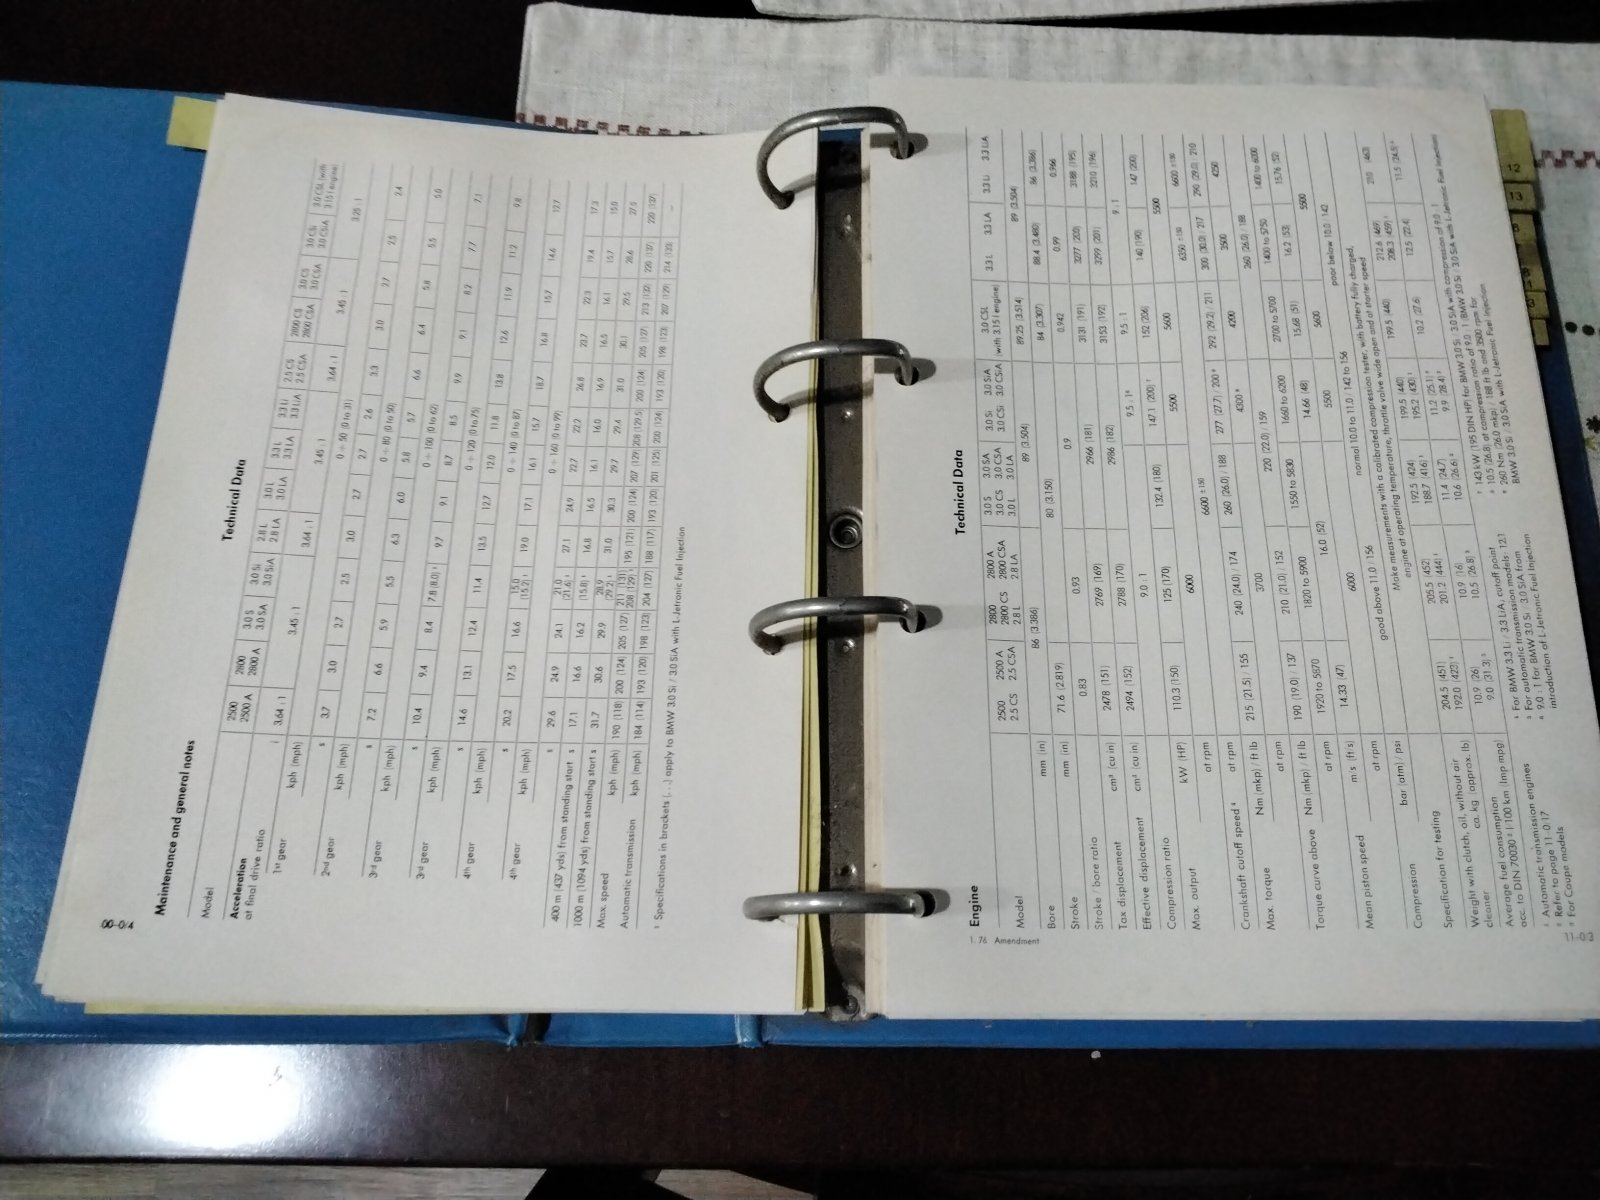 00-0/4
Maintenance and general notes
Technical Data
Model
2500 2800 3.0 S 3.0 Si 2.8 L 3.0 L 3.3 L 3.3 Li 2.5 CS 2800 CS 3.0 CS 3.0 CSi 3.0 CSL (with
2500 A 2800 A 3.0 SA 3.0 SiA 2.8 LA 3.0 LA 3.3 LA 3.3 LiA 2.5 CSA 2800 CSA 3.0 CSA 3.0 CSiA 3.15 l engine)
Acceleration
at final drive ratio i 3.64 : 1 3.45 : 1 3.64 : 1 3.45 : 1 3.64 : 1 3.45 : 1 3.25 : 1
1st gear kph (mph) 0 ÷ 50 (0 to 31)
s 3.7 3.0 2.7 2.5 3.0 2.7 2.7 2.6 3.3 3.0 2.7 2.5 2.4
2nd gear kph (mph) 0 ÷ 80 (0 to 50)
s 7.2 6.6 5.9 5.5 6.3 6.0 5.8 5.7 6.6 6.4 5.8 5.5 5.0
3rd gear kph (mph) 0 ÷ 100 (0 to 62)
s 10.4 9.4 8.4 7.8 (8.0) ¹ 9.7 9.1 8.7 8.5 9.9 9.1 8.2 7.7 7.1
3rd gear kph (mph) 0 ÷ 120 (0 to 75)
s 14.6 13.1 12.4 11.4 13.5 12.7 12.0 11.8 13.8 12.6 11.9 11.2 9.8
4th gear kph (mph) 0 ÷ 140 (0 to 87)
s 20.2 17.5 16.6 15.0 (15.2) ¹ 19.0 17.1 16.1 15.7 18.7 16.8 15.7 14.6 12.7
4th gear kph (mph) 0 ÷ 160 (0 to 99)
s 29.6 24.9 24.1 21.0 (21.6) ¹ 27.1 24.9 22.7 22.2 26.8 23.7 22.3 19.4 17.3
400 m (437 yds) from standing start s 17.1 16.6 16.2 (15.8) ¹ 16.8 16.5 16.1 16.0 16.9 16.5 16.1 15.7 15.0
1000 m (1094 yds) from standing start s 31.7 30.6 29.9 28.9 (29.2) ¹ 31.0 30.3 29.7 29.4 31.0 30.1 29.5 28.6 27.5
Max. speed kph (mph) 190 (118) 200 (124) 205 (127) 211 (131) 208 (129) ¹ 195 (121) 200 (124) 207 (129) 208 (129.5) 200 (124) 205 (127) 213 (132) 220 (137) 220 (137)
Automatic transmission kph (mph) 184 (114) 193 (120) 198 (123) 204 (127) 188 (117) 193 (120) 201 (125) 200 (124) 193 (120) 198 (123) 207 (129) 214 (133) –
¹ Specifications in brackets (. . .) apply to BMW 3.0 Si / 3.0 SiA with L-Jetronic Fuel Injection
Technical Data
Engine
Model
2500 2500 A 2800 2800 A 3.0 S 3.0 SA 3.0 Si 3.0 SiA 3.0 CSL 3.3 L 3.3 LA 3.3 Li 3.3 LiA
2.5 CS 2.5 CSA 2800 CS 2800 CSA 3.0 CS 3.0 CSA 3.0 CSi 3.0 CSiA (with 3.15 l engine)
2.8 L 2.8 LA 3.0 L 3.0 LA
Bore mm (in) 86 (3.386) 89 (3.504) 89.25 (3.514) 89 (3.504)
Stroke mm (in) 71.6 (2.819) 80 (3.150) 84 (3.307) 88.4 (3.480) 86 (3.386)
Stroke / bore ratio 0.83 0.93 0.9 0.942 0.99 0.966
Tax displacement cm³ (cu in) 2478 (151) 2769 (169) 2966 (181) 3131 (191) 3277 (200) 3188 (195)
Effective displacement cm³ (cu in) 2494 (152) 2788 (170) 2986 (182) 3153 (192) 3299 (201) 3210 (196)
Compression ratio 9.0 : 1 9.5 : 1⁸ 9.5 : 1 9 : 1
Max. output kW (HP) 110.3 (150) 125 (170) 132.4 (180) 147.1 (200) ⁷ 152 (206) 140 (190) 147 (200)
at rpm 6000 5500 5600 5500
Crankshaft cutoff speed ⁴ at rpm 6600 ±150 6350 ±150 6600 ±150
Max. torque Nm (mkp) / ft lb 215 (21.5) / 155 240 (24.0) / 174 260 (26.0) / 188 277 (27.7) / 200 ⁹ 292 (29.2) / 211 300 (30.0) / 217 290 (29.0) 210
at rpm 3700 4300 ⁹ 4200 3500 4250
Torque curve above Nm (mkp) / ft lb 190 (19.0) / 137 210 (21.0) / 152 220 (22.0) / 159 260 (26.0) / 188
at rpm 1920 to 5870 1820 to 5900 1550 to 5830 1660 to 6200 2700 to 5700 1400 to 5750 1400 to 6000
Mean piston speed m/s (ft/s) 14.33 (47) 16.0 (52) 14.66 (48) 15.68 (51) 16.2 (53) 15.76 (52)
at rpm 6000 5500 5600 5500
Compression bar (atm) / psi good above 11.0 / 156 normal 10.0 to 11.0 / 142 to 156 poor below 10.0 / 142
Specification for testing Make measurements with a calibrated compression tester, with battery fully charged,
engine at operating temperature, throttle valve wide open and at starter speed
Weight with clutch, oil, without air
cleaner ca. kg (approx. lb) 204.5 (451) 192.0 (423) ⁵ 205.5 (452) 201.2 (444) ⁵ 192.5 (424) 188.7 (416) ⁵ 199.5 (440) 195.2 (430) ⁵ 199.5 (440) 212.6 (469) 208.3 (459) 210 (463)
Average fuel consumption
acc. to DIN 70030 ² l 100 km (Imp mpg) 10.9 (26) 9.0 (31.3) 10.9 (16) 10.5 (26.8) 11.4 (24.7) 10.6 (26.6) 11.2 (25.1) 9.9 (28.4) 10.2 (27.6) 12.5 (22.4) 11.5 (24.5)
Automatic transmission engines
Refer to page 11-0/17
For Coupe models
⁴ For BMW 3.3 Li / 3.3 LiA; cutoff point
For automatic transmission models: 12.1
9.0 : 1 for BMW 3.0 Si / 3.0 SiA from
introduction of L-Jetronic Fuel Injection
⁷ 143 kW (195 DIN HP) for BMW 3.0 Si / 3.0 SiA with compression of 9.0 : 1
10.5 (26.8) at compression ratio of 9.0 : 1 (BMW 3.0 Si / 3.0 SiA with L-Jetronic Fuel Injection)
⁹ 260 Nm (26.0 mkp) / 188 ft lb and 3500 rpm for
BMW 3.0 Si / 3.0 SiA with L-Jetronic Fuel Injection
1. 76 Amendment
11-0/3
12
13